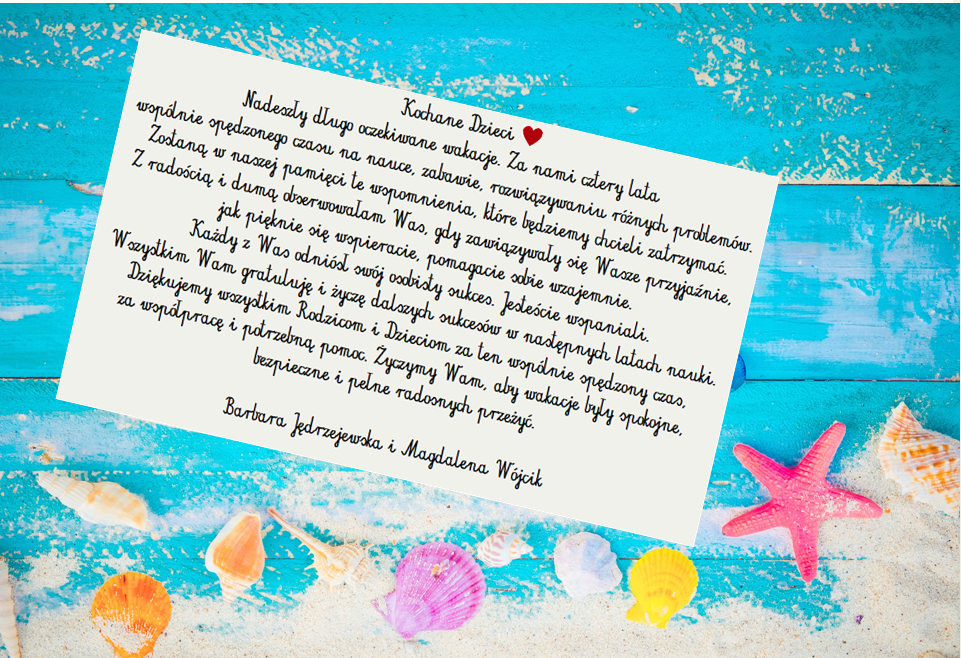 Kochane Dzieci ❤
Nadeszły długo oczekiwane wakacje. Za nami cztery lata
wspólnie spędzonego czasu na nauce, zabawie, rozwiązywaniu różnych problemów.
Zostaną w naszej pamięci te wspomnienia, które będziemy chcieli zatrzymać.
Z radością i dumą obserwowałam Was, gdy zawiązywały się Wasze przyjaźnie,
jak pięknie się wspieracie, pomagacie sobie wzajemnie.
Każdy z Was odniósł swój osobisty sukces. Jesteście wspaniali.
Wszystkim Wam gratuluję i życzę dalszych sukcesów w następnych latach nauki.
Dziękujemy wszystkim Rodzicom i Dzieciom za ten wspólnie spędzony czas,
za współpracę i potrzebną pomoc. Życzymy Wam, aby wakacje były spokojne,
bezpieczne i pełne radosnych przeżyć.
Barbara Jędrzejewska i Magdalena Wójcik